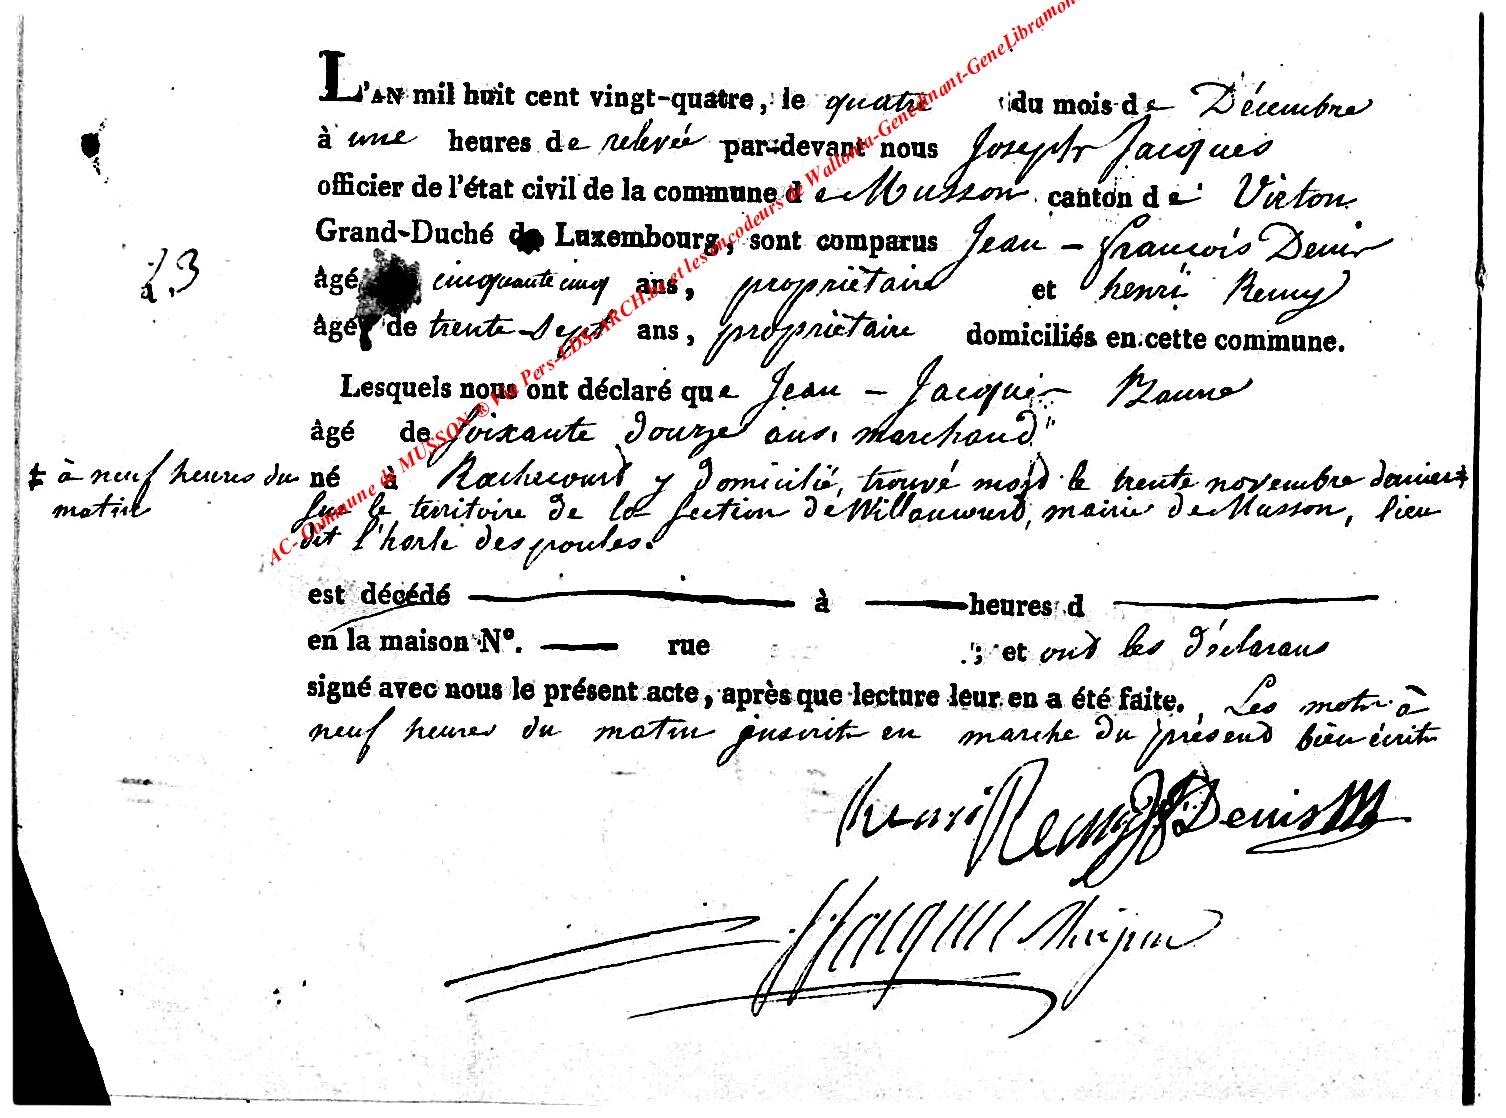 L'AN mil huit cent vingt-quatre, le quatre du mois de Décembre
à une heures de relevée par-devant nous Joseph Jacques
officier de l'état civil de la commune de Musson canton de Virton
Grand-Duché de Luxembourg, sont comparus Jean - françois Denis
23
âgé cinquante cinq ans, propriétaire et henri Remy
âgé de trente-sept ans, propriétaire domiciliés en cette commune.
Lesquels nous ont déclaré que Jean - Jacques
âgé de soixante douze ans, marchand
né à Rachecourt y domicilié, trouvé mort le trente novembre dernier ‡
‡ à neuf heures du
matin
sur le territoire de la section de Willancourt, mairie de Musson, lieu
dit l'horle des poules.
est décédé à heures d
en la maison N°. rue ; et ont les déclarans
signé avec nous le présent acte, après que lecture leur en a été faite. Les mots à
neuf heures du matin inscrit en marche du présend bien écrit
henri Remy Denis
JJacques
AC-Commune de MUSSON ® Via Pers-LDS-ARCH.be et les encodeurs de Wallonia-Genedinant-GeneLibramon